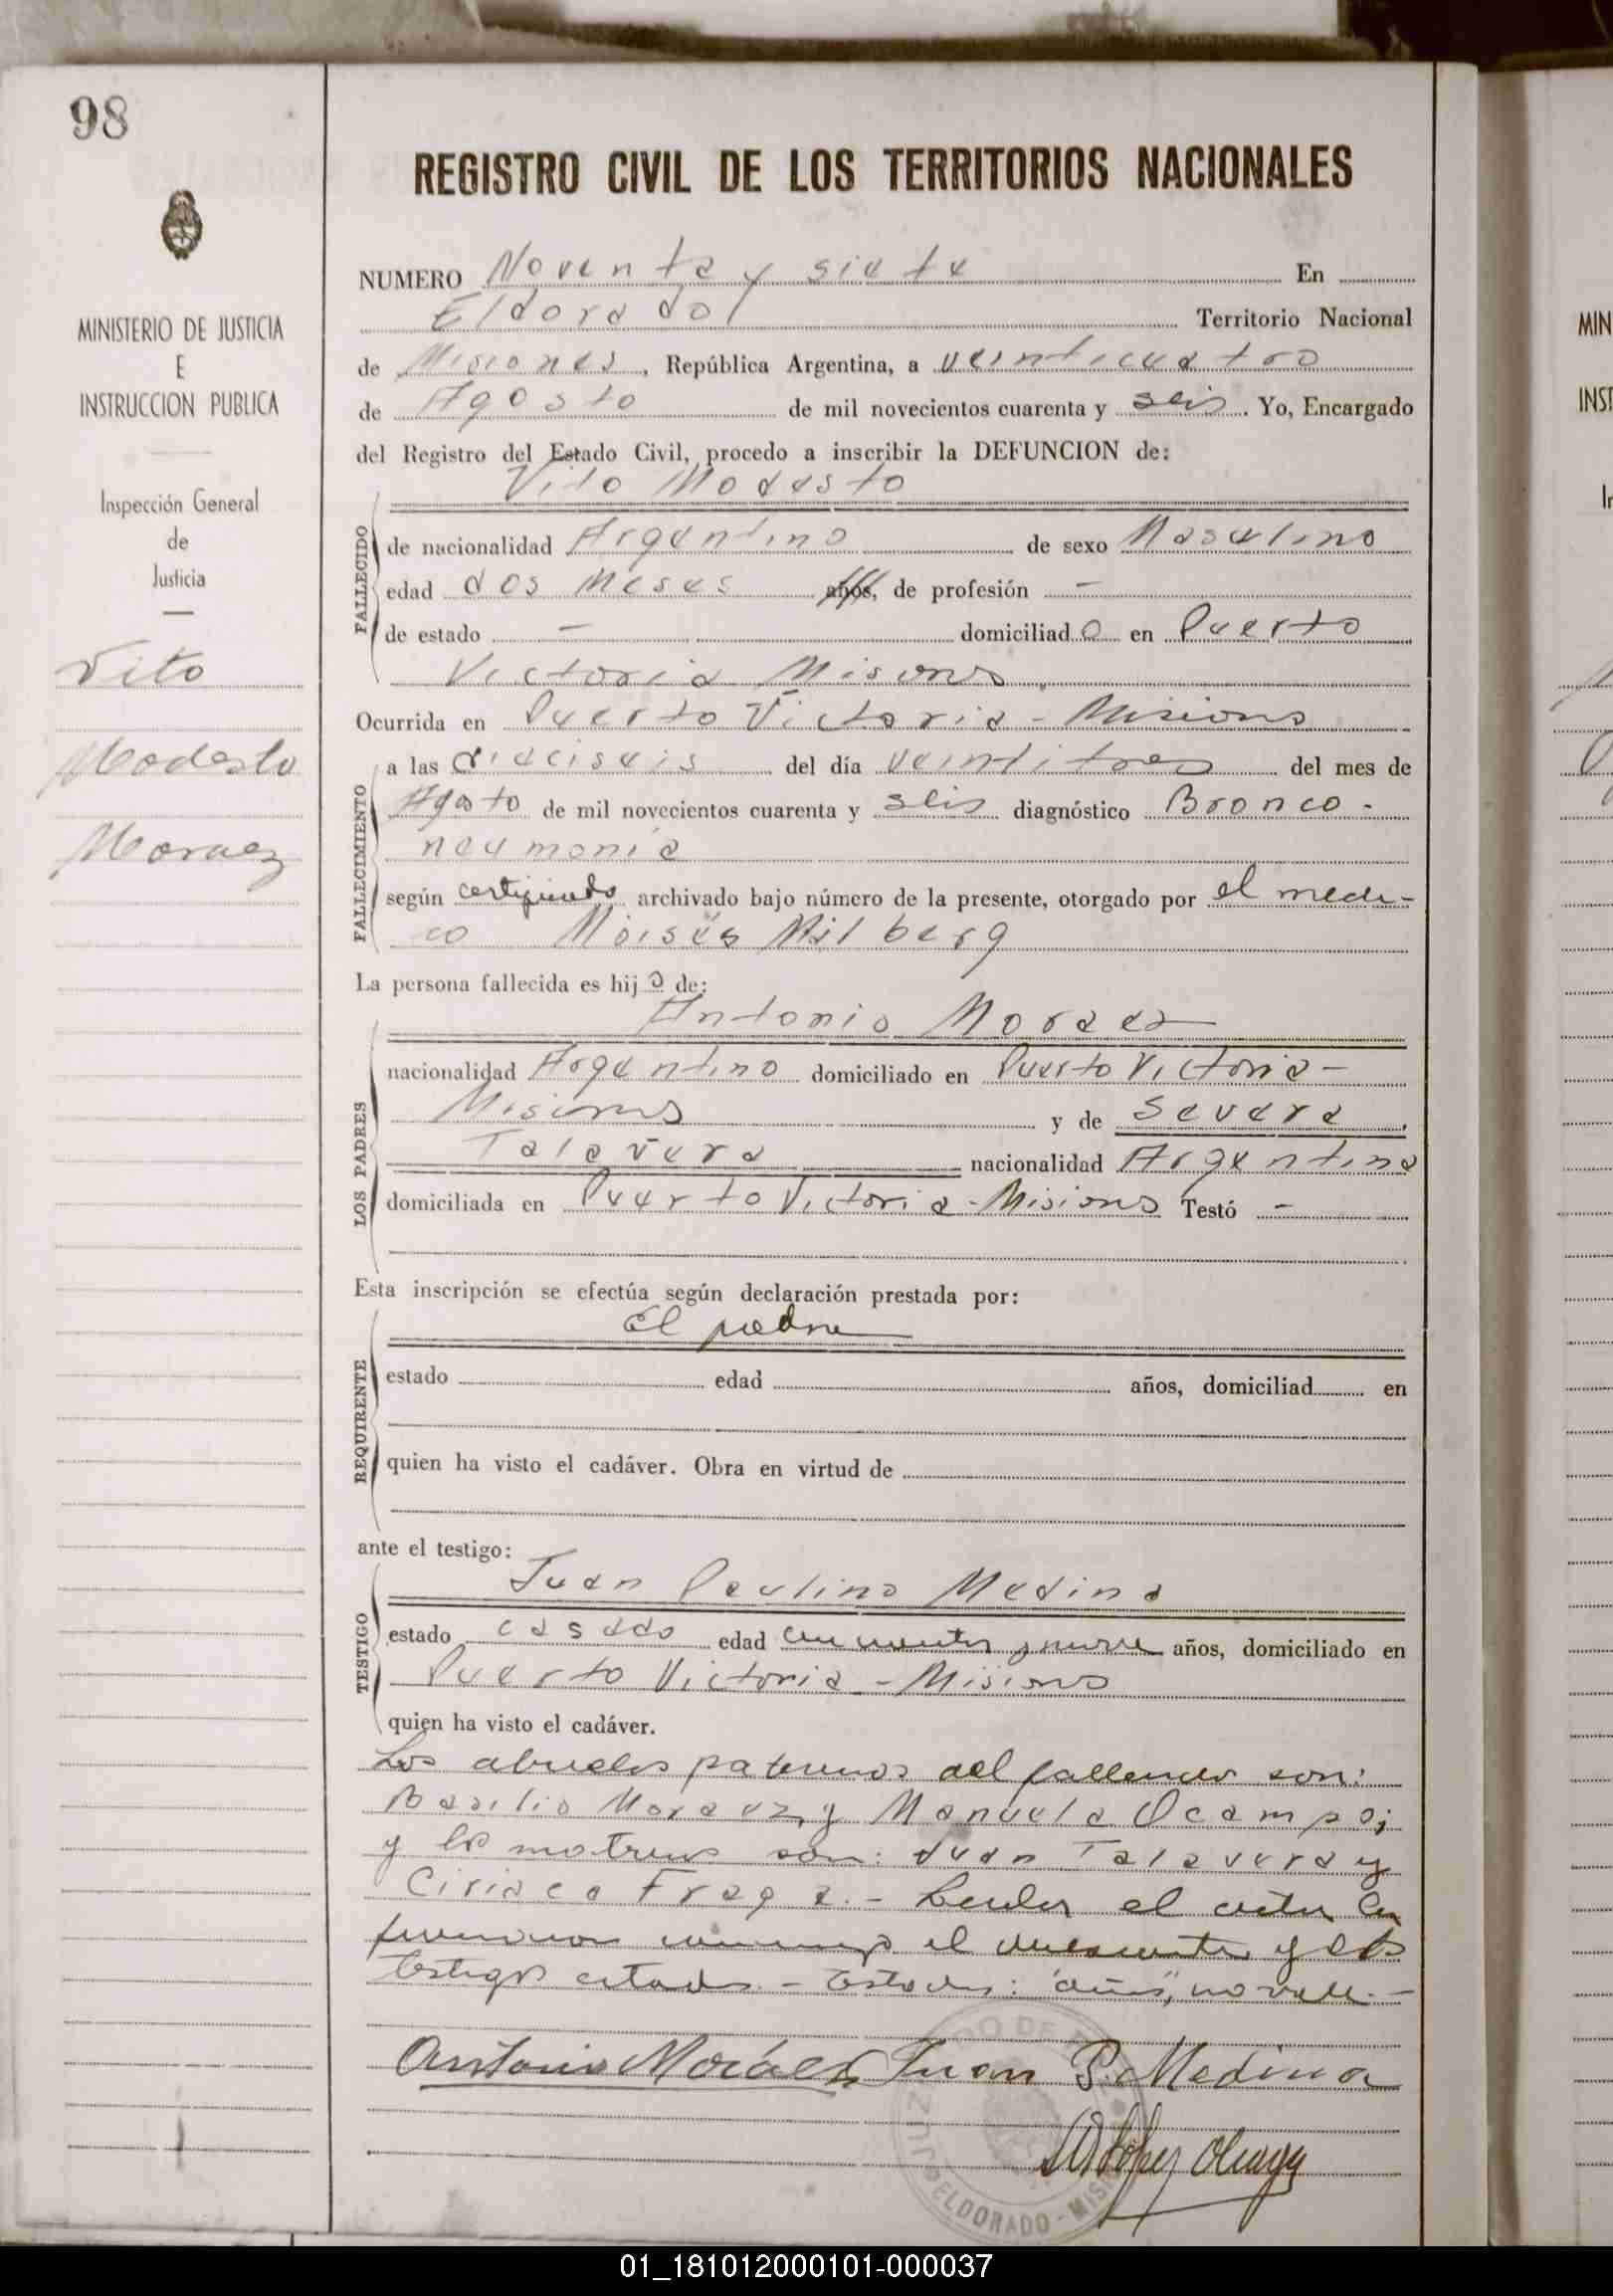 98
MINISTERIO DE JUSTICIA
E
INSTRUCCION PUBLICA
Inspección General
de
Justicia
Vito
Modesto
Moraez
REGISTRO CIVIL DE LOS TERRITORIOS NACIONALES
NUMERO Noventa y siete En
Eldorado Territorio Nacional
de Misiones, República Argentina, a veinticuatro
de Agosto de mil novecientos cuarenta y seis. Yo, Encargado
del Registro del Estado Civil, procedo a inscribir la DEFUNCION de:
Vito Modesto
FALLECIDO
de nacionalidad Argentino de sexo Masculino
edad dos meses años, de profesión —
de estado — domiciliado en Puerto
Victoria Misiones
Ocurrida en Puerto Victoria - Misiones
FALLECIMIENTO
a las dieciseis del día veintitres del mes de
Agosto de mil novecientos cuarenta y seis diagnóstico Bronco-
neumonia
según certificado archivado bajo número de la presente, otorgado por el medi-
co Moisés Milberg
La persona fallecida es hijo de:
LOS PADRES
Antonio Moraez
nacionalidad Argentino domiciliado en Puerto Victoria -
Misiones y de Severa
Talavera nacionalidad Argentina
domiciliada en Puerto Victoria - Misiones Testó —
Esta inscripción se efectúa según declaración prestada por:
REQUIRENTE
El padre
estado edad años, domiciliad en
quien ha visto el cadáver. Obra en virtud de
ante el testigo:
TESTIGO
Juan Paulino Medina
estado casado edad cincuenta y nueve años, domiciliado en
Puerto Victoria - Misiones
quien ha visto el cadáver.
Los abuelos paternos del fallecido son:
Basilio Moraez, y Manuela Ocampo;
y los maternos son: Juan Talavera y
Ciriaca Fraga. - Leida el acta la
firmaron conmigo el y el
testigo citado. - Testado: "años", no vale. -
Antonio Moráez Juan P. Medina
ELDORADO - MIS
MIN
INST
In
01_181012000101-000037